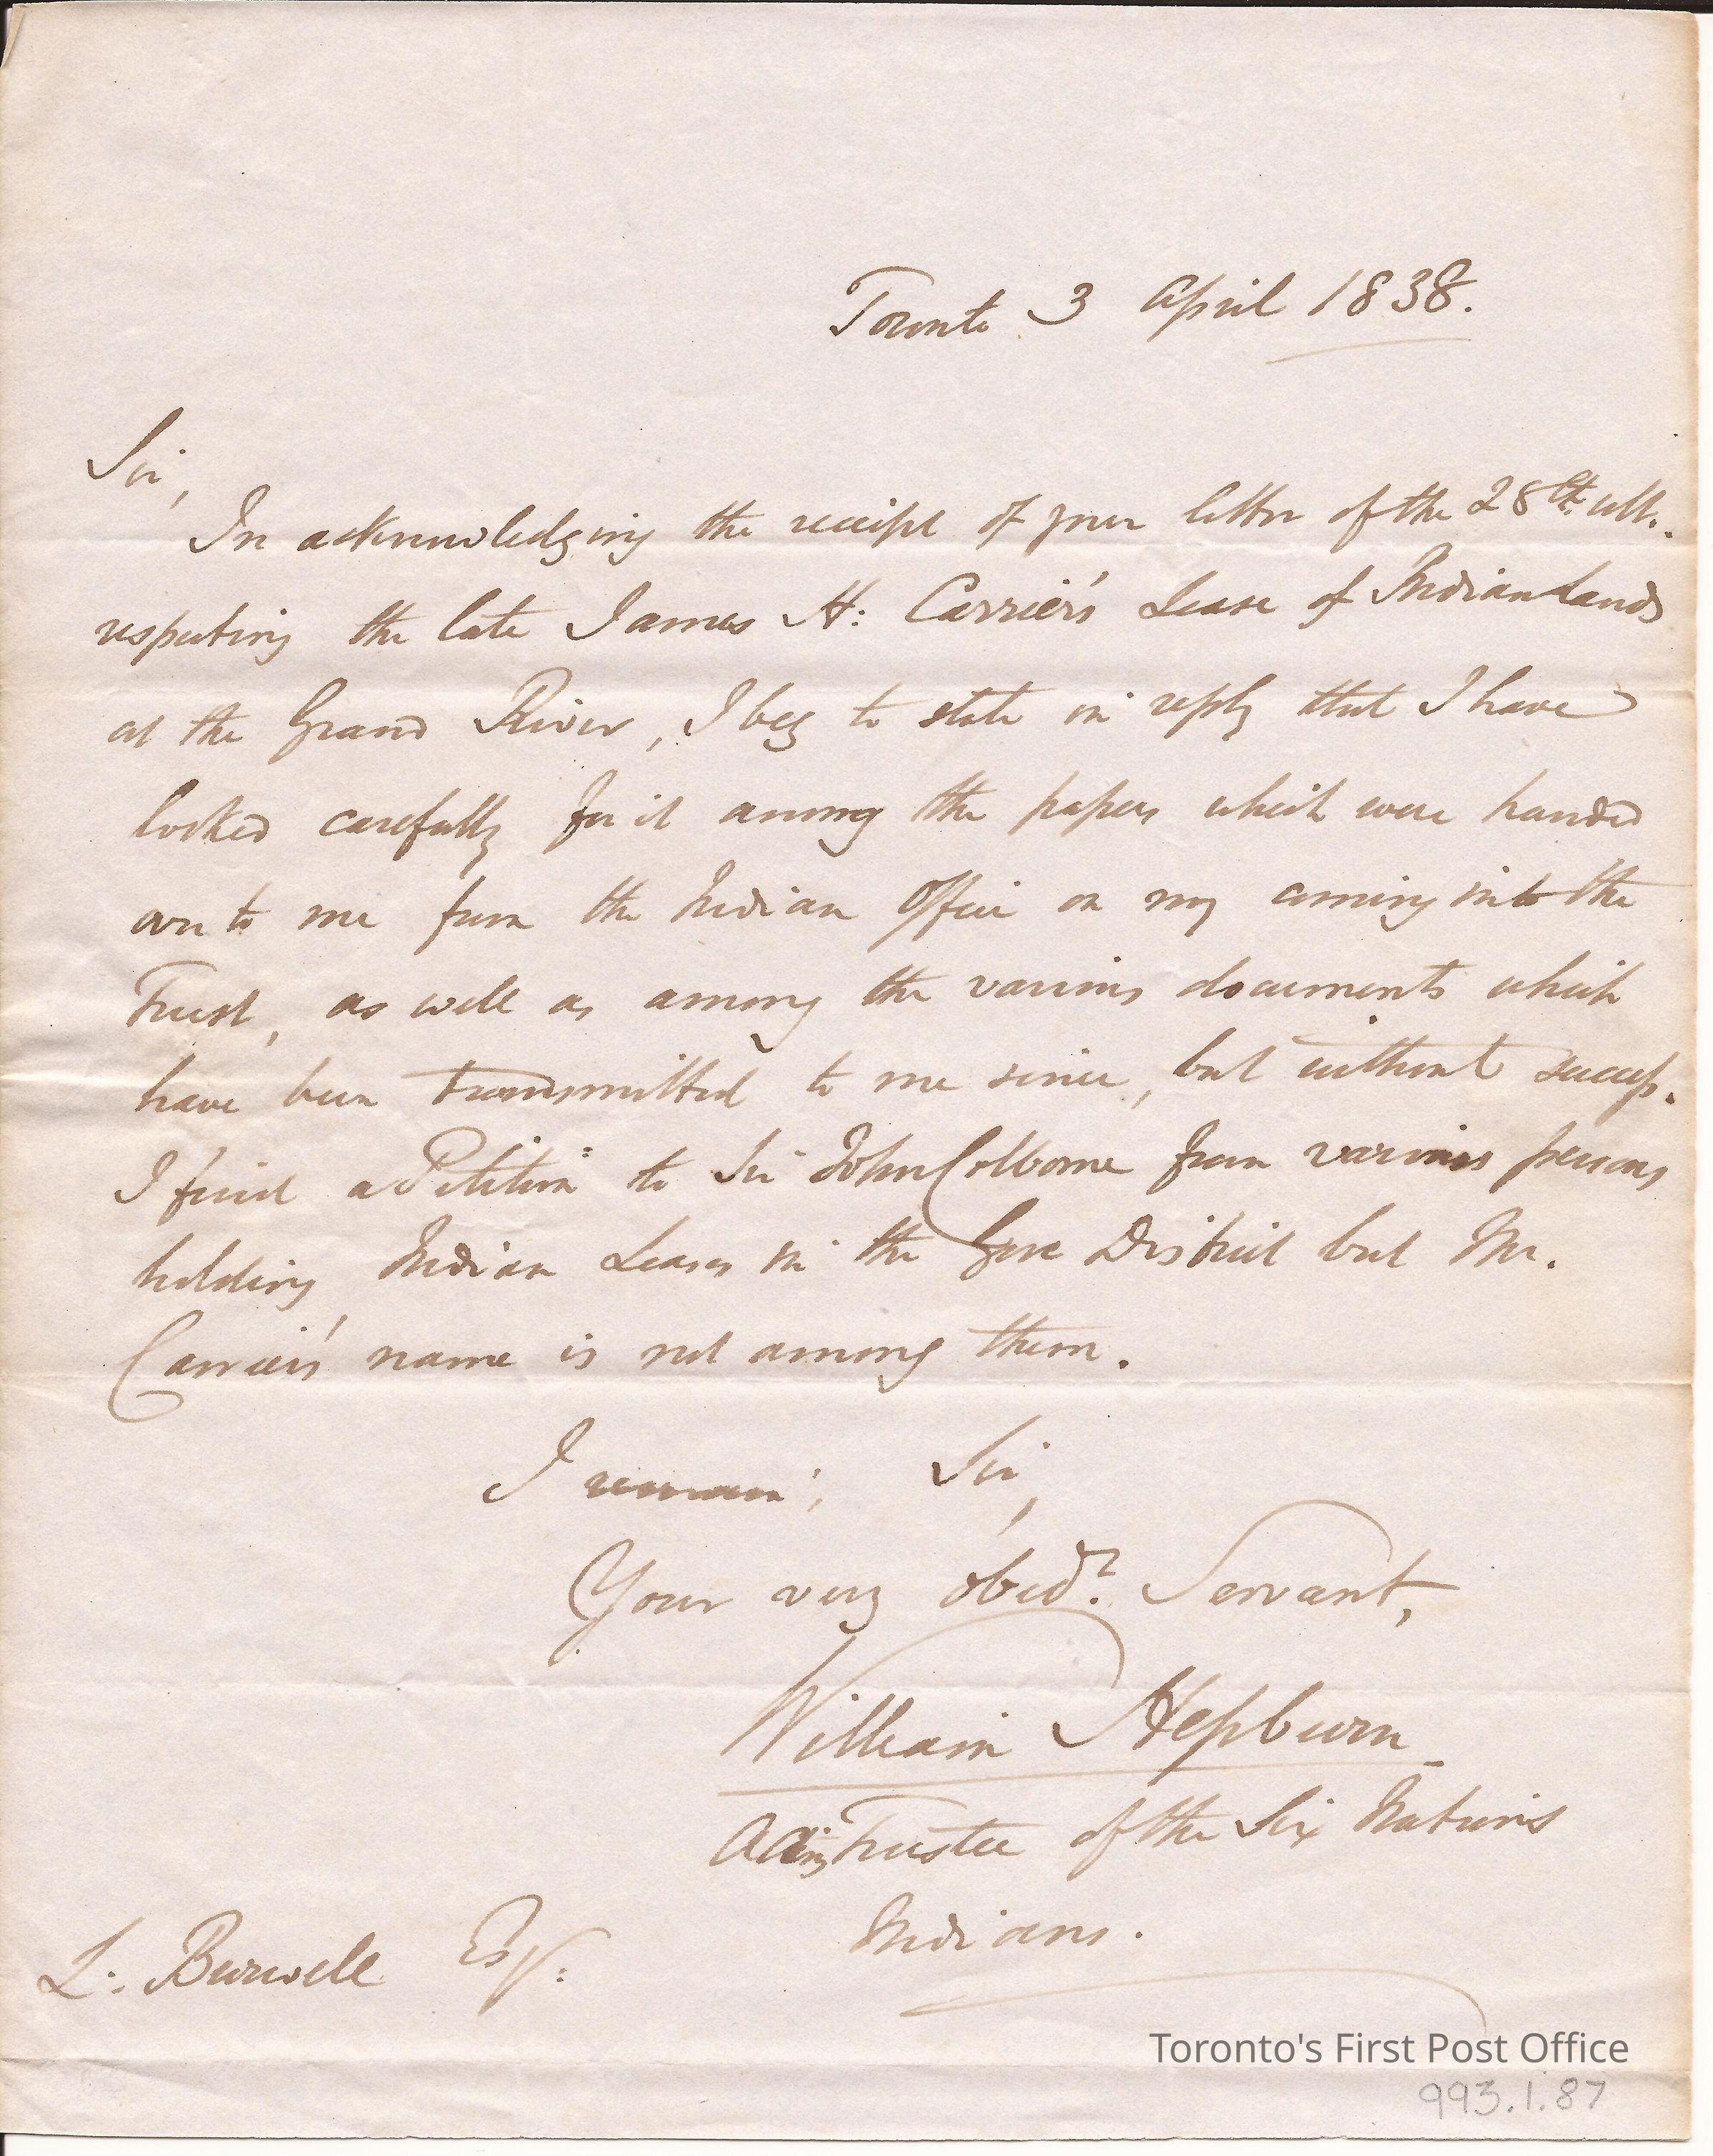 Toronto 3 April 1838.
Sir,
In acknowledging the receipt of your letter of the 28th. ult.
respecting the late James H: Carrier's Lease of Indian Lands
at the Grand River, I beg to state in reply that I have
looked carefully for it among the papers which were handed
over to me from the Indian Office on my coming into the
Trust, as well as among the various documents which
have been transmitted to me since, but without success.
I find a Petition to Sir John Colborne from various persons
holding Indian Leases in the Gore District but Mr.
Carrier's name is not among them.
I remain, Sir,
Your very obedt. Servant,
William Hepburn
Acting Trustee of the Six Nations
Indians.
L. Burwell Esqr:
Toronto's First Post Office
993.1.87